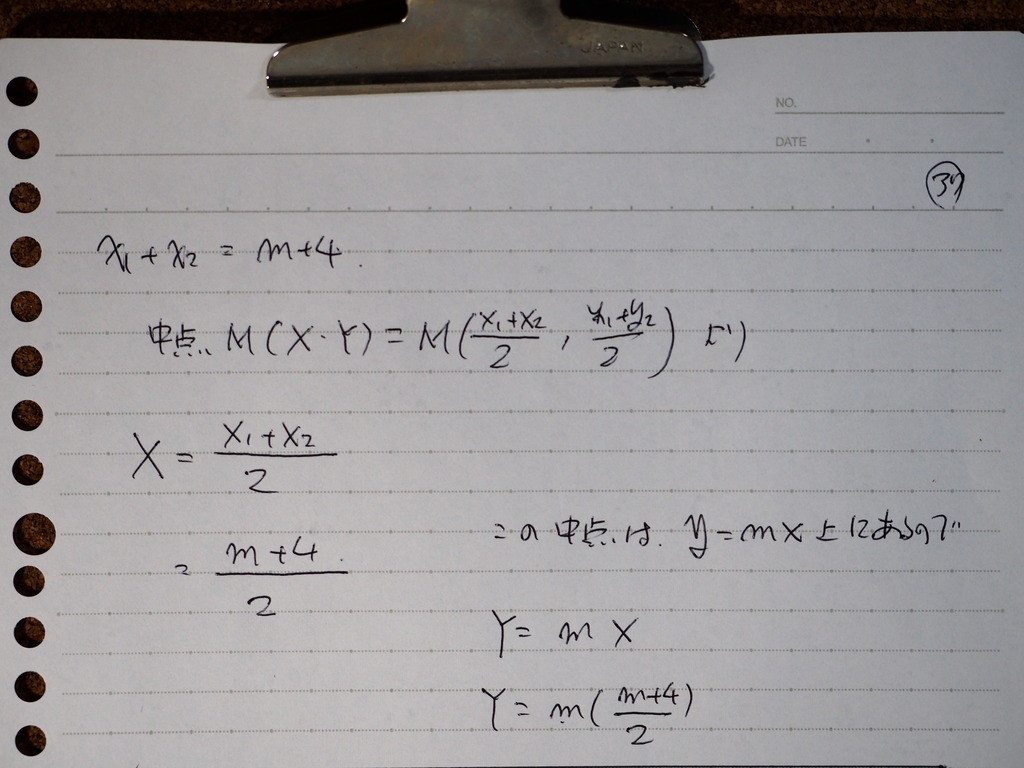 JAPAN
NO.
DATE
37
x₁+x₂ = m+4.
中点、M(X・Y)=M((x₁+x₂)/2, (y₁+y₂)/2) より
X = (x₁+x₂)/2
= (m+4)/2
この中点は、y=mx上にあるので
Y= m X
Y= m((m+4)/2)